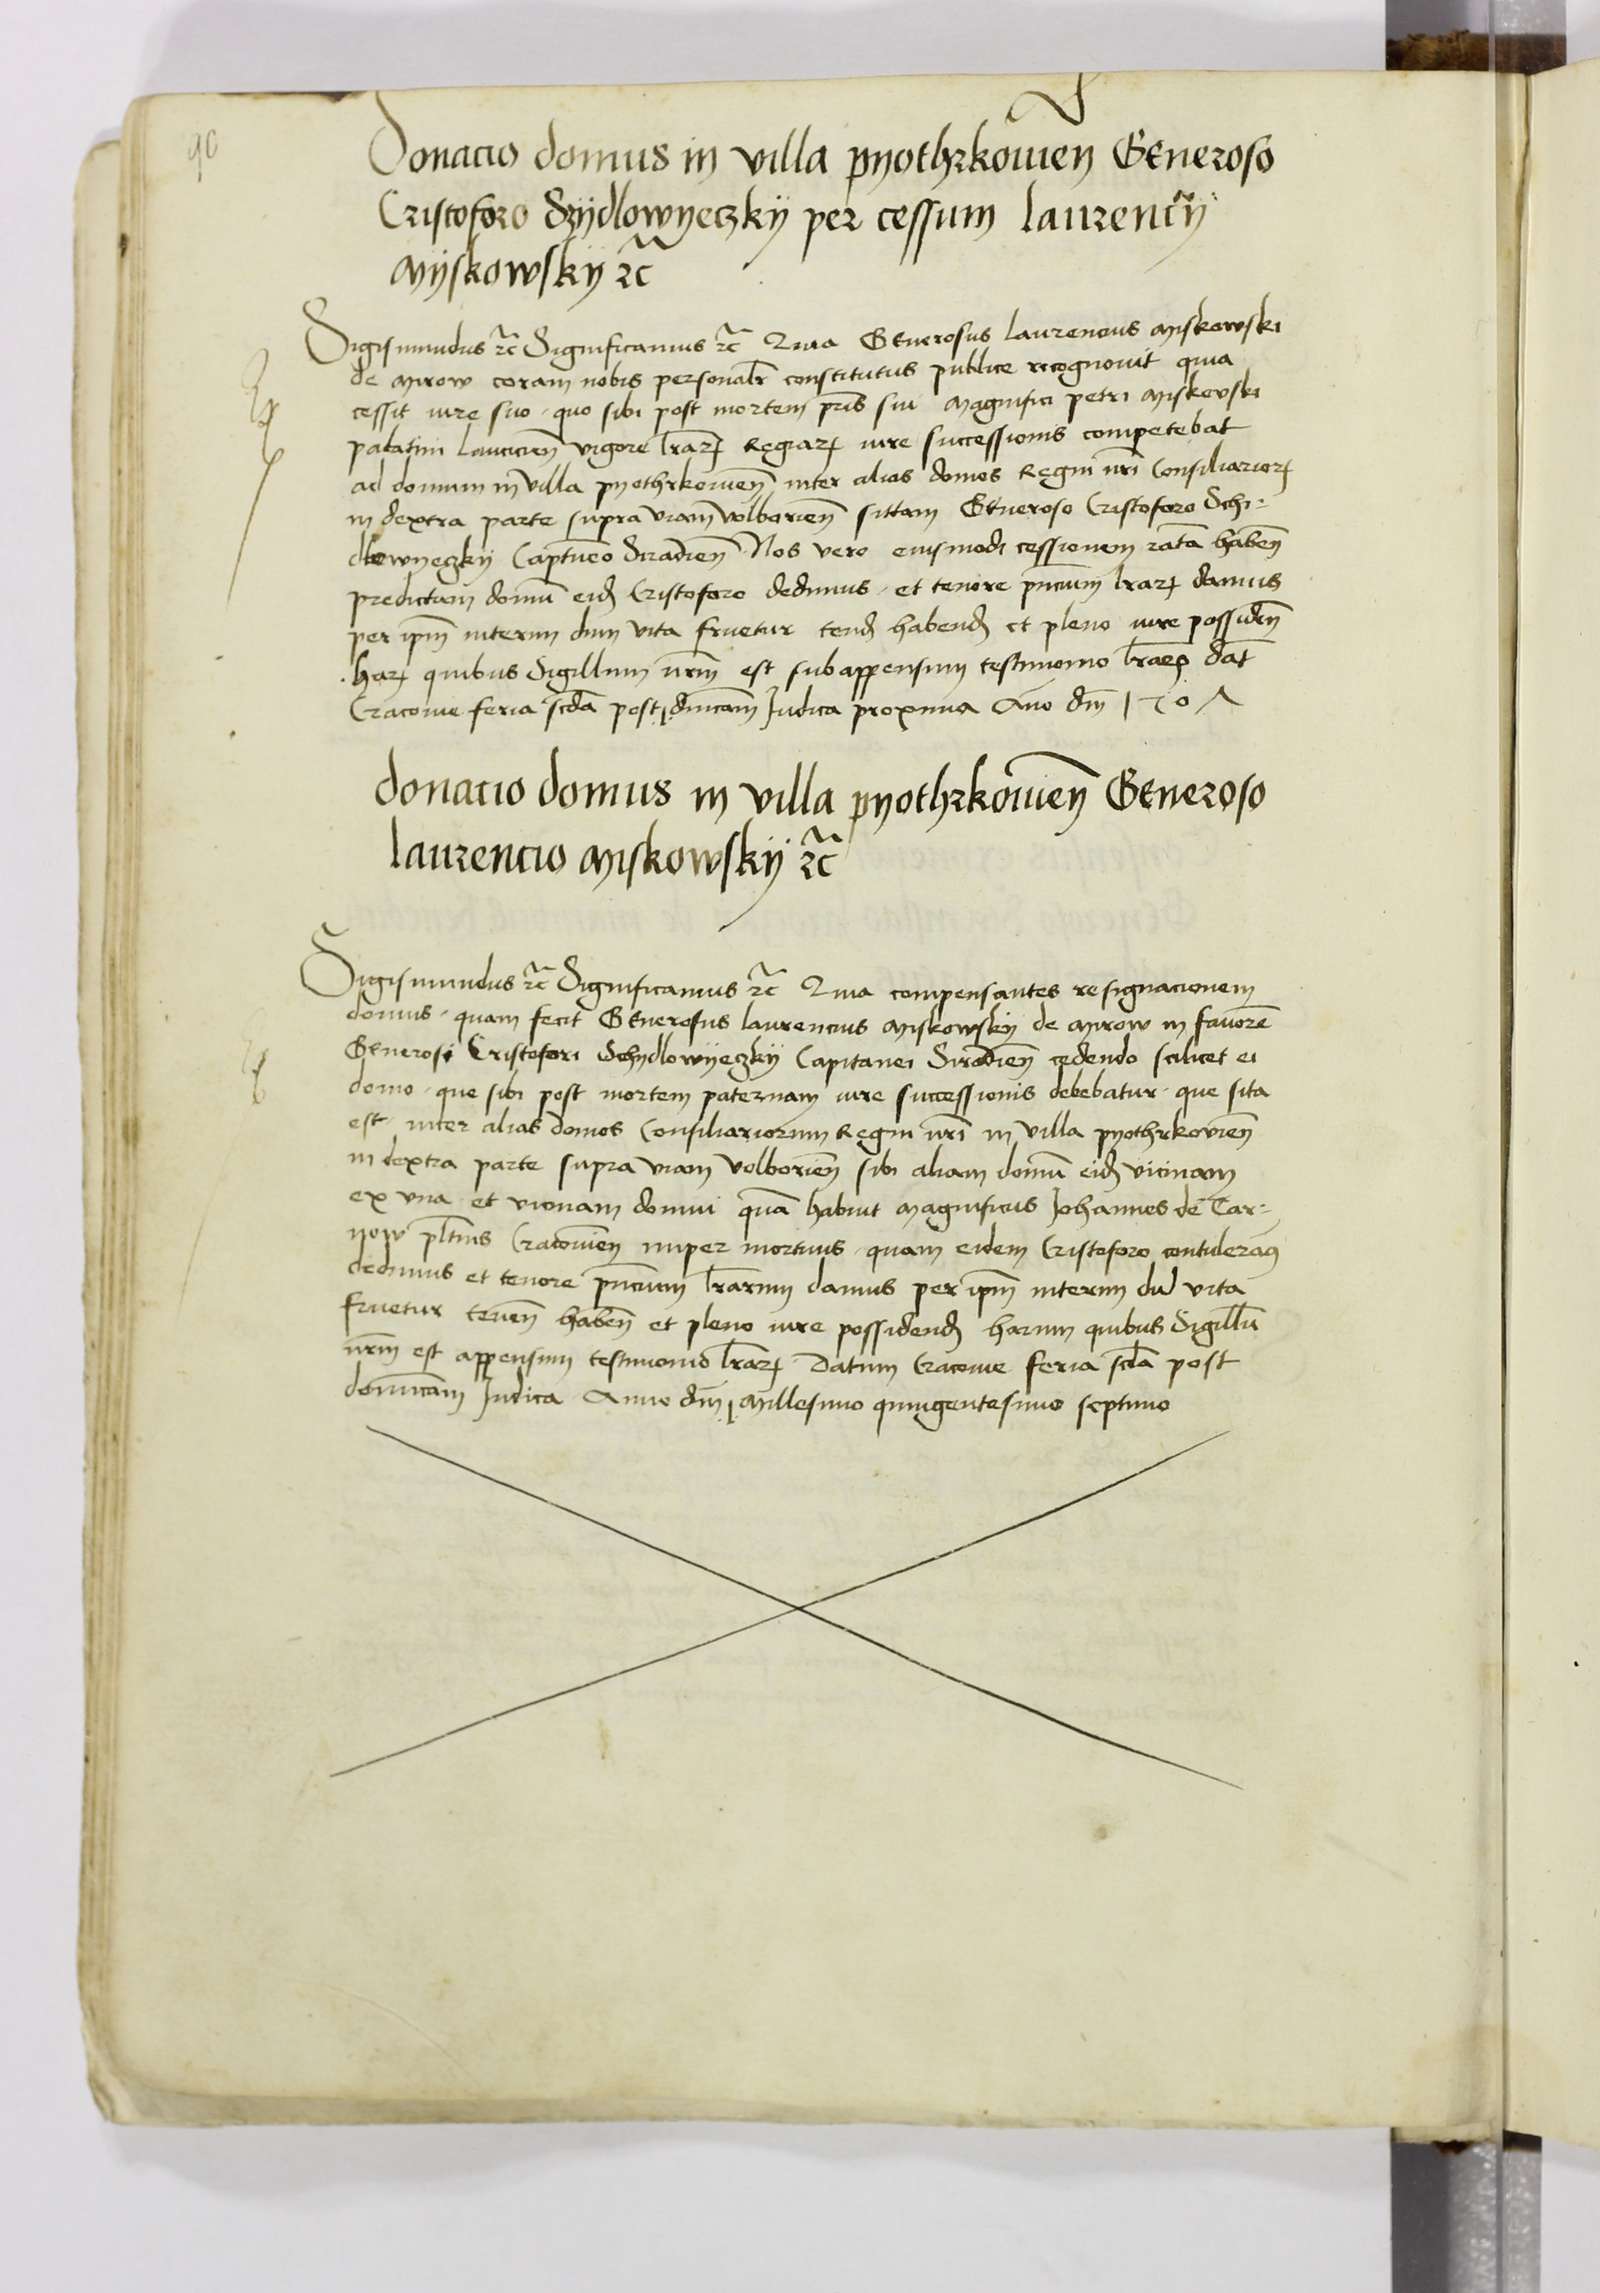 90
Donacio domus in villa pyothrkowien̄ Generoso
Cristoforo Szydlowyeczkÿ per cessum laurencÿ
Myskowskÿ ⁊c̃
Sigismundus ⁊c̃ Significamus ⁊c̃ Quia Generosus laurencius Miskowski
de Mirow coram nobis personalr̄ constitutus publice recognovit quia
cessit iure suo quo sibi post mortem pr̄is sui Magnifici petri Miskovski
palatini lancicien̄ vigore lr̄arꝝ Regiarꝝ iure successionis competebat
ad domum in villa pyothrkovien̄ inter alias domos Regni nr̄i Consiliariorꝝ
in dextra parte supra viam volborien̄ sittam Generoso Cristoforo Schi-
dlowyeczkÿ Capt̄neo Siradien̄ Nos vero eiusmodi cessionem ratā haben̄
predictam domū eidꝫ Cristoforo dedimus et tenore pn̄cium lr̄arꝝ damus
per ip̄m interim dum vita fruetur tend̄ habend̄ et pleno iure possiden̄
harꝝ quibus Sigillum nr̄m est subappensum testimonio lr̄arꝝ dat̄
Cracovie feria sc̄da post dn̄icam Judica proxima Año dn̄i 1507
donacio domus in villa pyothrkowien̄ Generoso
laurencio Miskowskÿ ⁊c̃
Sigismundus ⁊c̃ Significamus ⁊c̃ Quia compensantes resignacionem
domus quam fecit Generosus laurencius Miskowskÿ de Mirow in favorē
Generosi Cristofori Schydlowyeczkÿ Capitanei Siradien̄ cedendo scilicet ei
domo que sibi post mortem paternam iure successionis debebatur que sita
est inter alias domos Consiliariorum Regni nr̄i in villa pyothrkovien̄
in dextra parte supra viam volborien̄ sibi aliam domū eidꝫ vicinam
ex una et vicinam domui quā habuit Magnificus Johannes de Tar-
now pl̄tnus Cracovien̄ nuper mortuus quam eidem Cristoforo contuleramꝯ
dedimus et tenore pn̄cium lr̄arum damus per ip̄m interim dū vita
fruetur tenen̄ haben̄ et pleno iure possidend̄ harum quibus Sigillū
nr̄m est appensum testimonio lr̄arꝝ Datum Cracovie feria sc̄da post
domīcam Judica Anno dn̄i Millesimo quingentesimo septimo